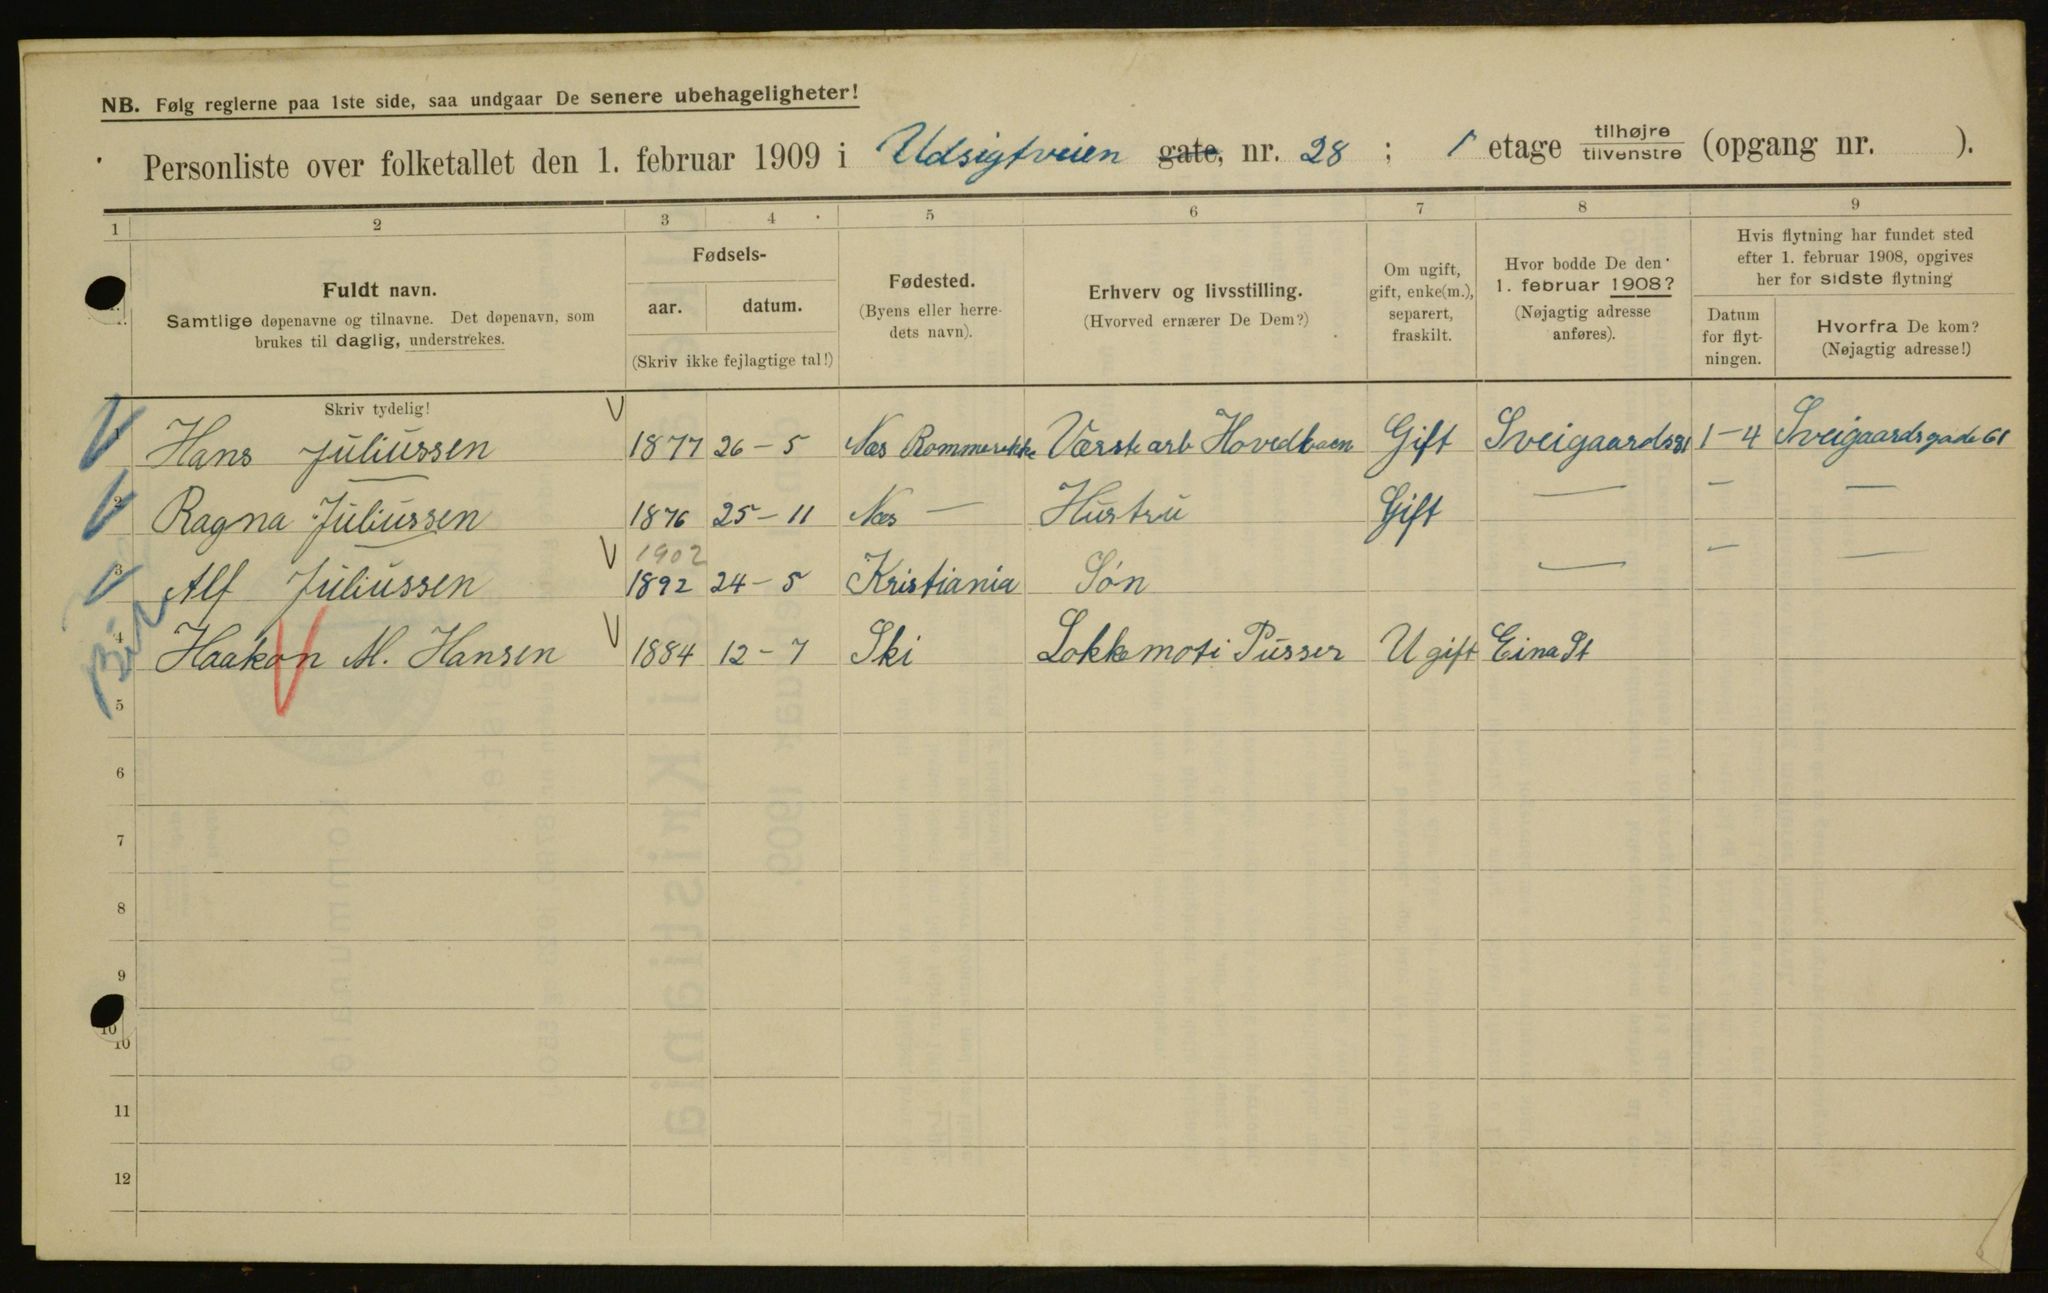 NB. Følg reglerne paa 1ste side, saa undgaar De senere ubehageligheter!
Personliste over folketallet den 1. februar 1909 i Udsigtveien gate, nr. 28 ; 1 etage tilhøjre tilvenstre (opgang nr. ).
1 2 3 4 5 6 7 8 9
Fuldt navn.
Samtlige døpenavne og tilnavne. Det døpenavn, som
brukes til daglig, understrekes.
Skriv tydelig!
Fødsels-
aar. datum.
(Skriv ikke fejlagtige tal!)
Fødested.
(Byens eller herre-
dets navn).
Erhverv og livsstilling.
(Hvorved ernærer De Dem?)
Om ugift,
gift, enke(m.),
separert,
fraskilt.
Hvor bodde De den
1. februar 1908?
(Nøjagtig adresse
anføres).
Hvis flytning har fundet sted
efter 1. februar 1908, opgives
her for sidste flytning
Datum
for flyt-
ningen.
Hvorfra De kom?
(Nøjagtig adresse!)
1 Hans Juliussen 1877 26-5 Næs Rommerekke Værkst arb Hovedbaen Gift Sveigaardsg 1-4 Sveigaardsgade 61
2 Ragna Juliussen 1876 25-11 Næs — Hustru Gift — — —
1902
3 Alf Juliussen 1892 24-5 Kristiania Søn — — —
4 Haakon M. Hansen 1884 12-7 Ski Lokkemoti Pusser Ugift Eina St
5
6
7
8
9
10
10
11
12